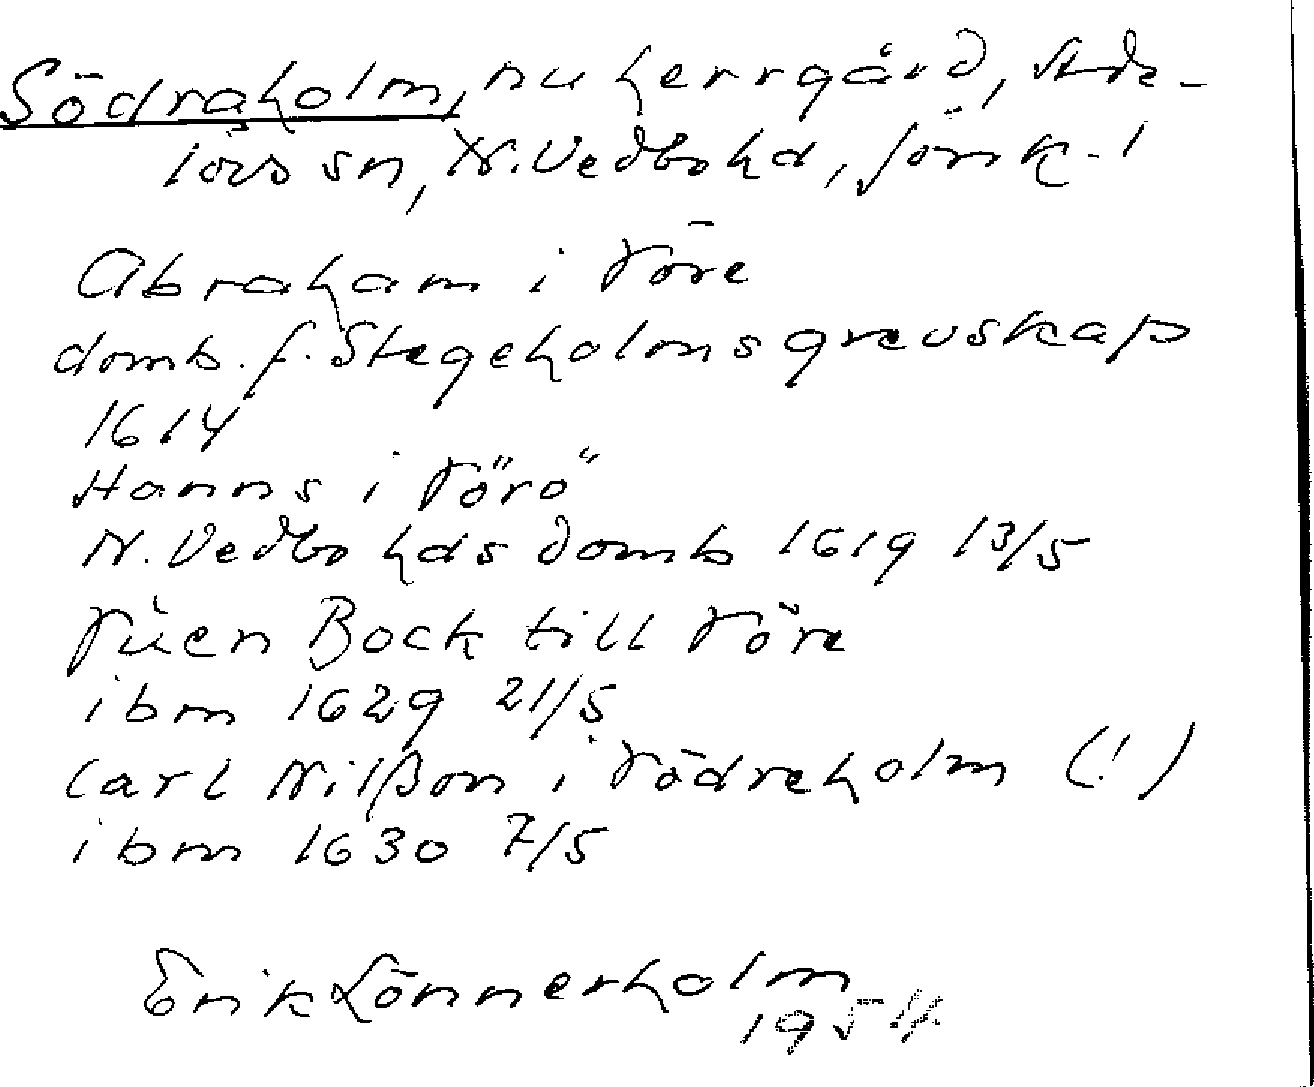 Södraholm, nu herrgård, Ade-
lövs sn, N. Vedbo hd, Jönk. l
Abraham i Töre
domb. f. Stegeholms grevskap
1614
Hanns i Törö
N. Vedbo hds domb 1619 13/5
Bock till Töre
ibm 1629 21/5
Carl Nilßon i Södreholm (!)
ibm 1630 7/5
Erik Lönnerholm
1954.